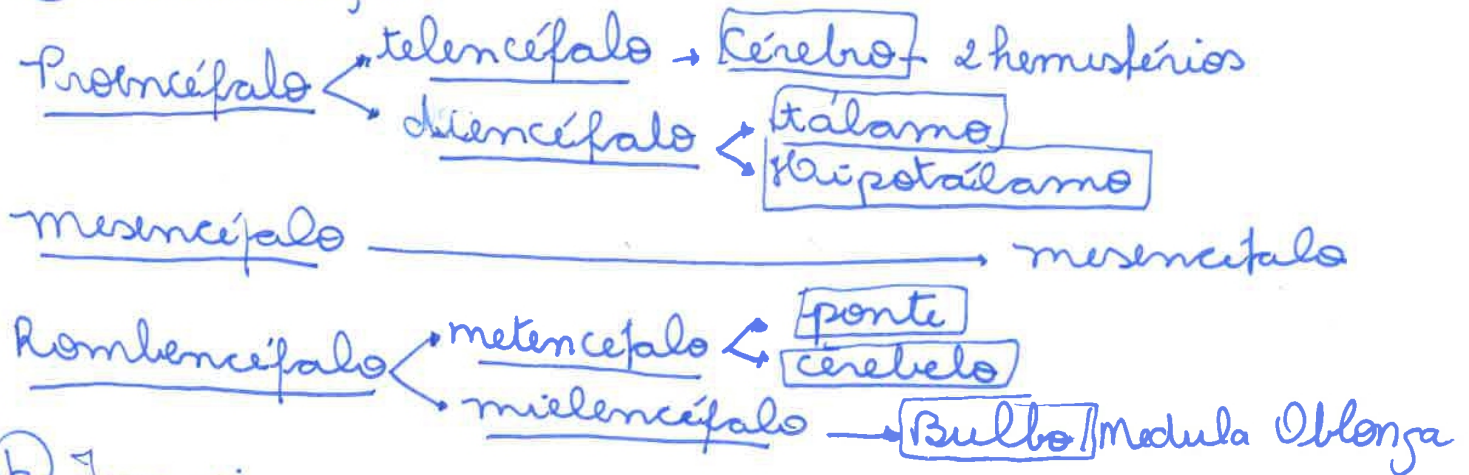 Proencéfalo telencéfalo → Cérebro - 2 hemisférios
diencéfalo tálamo
Hipotálamo
mesencéfalo → mesencefalo
Rombencéfalo metencefalo ponte
cerebelo
mielencéfalo → Bulbo/Medula Oblonga
b)